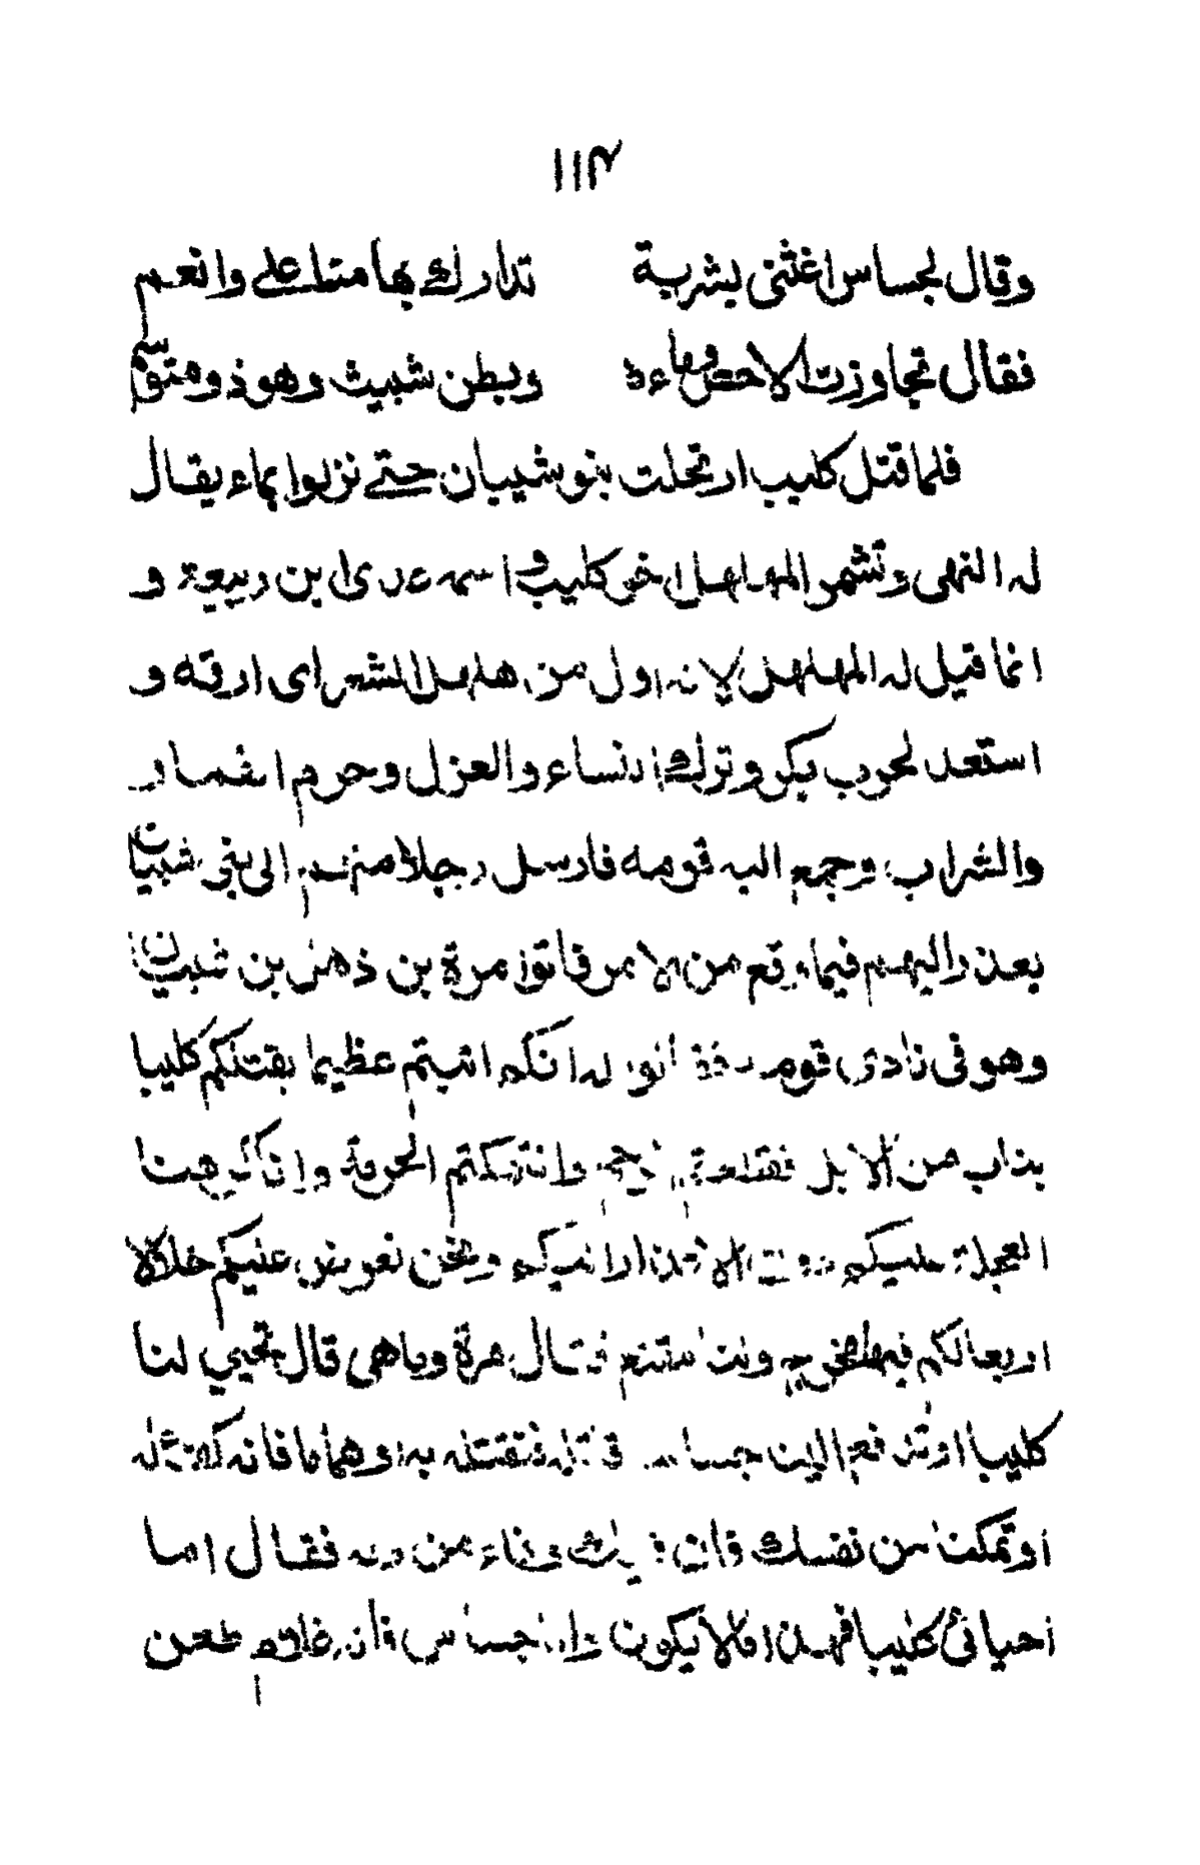 ١١٣
وقال لجساس اغثنى بشربة تدارك بها متا على وانعم
فقال تجاوزت الاحص وماءه وبطن شبيث وهو ذو متوسم
فلما قتل كليب ارتحلت بنو شيبان حتى نزلوا بماء يقال
له النهى وتشمر المهلهل اخو كليب و اسمه عدى ابن ربيعة و
انما قيل له المهلهل لانه اول من هلهل الشعر اى ارقه و
استعد لحرب بكر وترك النساء والغزل وحرم القمار
والشراب وجمع اليه قومه فارسل رجلا منهم الى بنى شيبان
يعذر اليهم فيما وقع من الامر فاتوا مرة بن ذهل بن شيبان
وهو فى نادى قومه فقالوا له انكم اتيتم عظيما بقتلكم كليبا
بناب من الابل فقطعتم الرحم وانتهكتم الحرمة وانا كرهنا
العجلة عليكم دون الاعذار اليكم ونحن نعرض عليكم خلالا
اربعا لكم فيها مخرج ولنا مقنع فقال مرة وما هى قال تحيي لنا
كليبا او تدفع الينا جساسا قاتله فنقتله به او هماما فانه كفؤ له
او تمكنا من نفسك فان فيك وفاء من دمه فقال اما
احيائى كليبا فهذا ما لا يكون واما جساس فانه غلام طعن